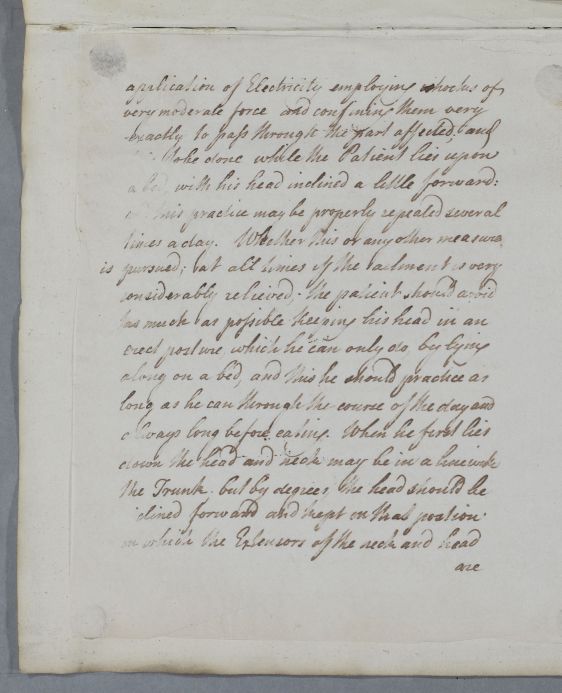 application of Electricity employing shocks of
very moderate force and confining them very
exactly to pass through the part affected, and
to be done while the Patient lies upon
a bed, with his head inclined a little forward:
this practice may be properly repeated several
times a day. Whether this or any other measure
is pursued; at all times if the ailment is very
considerably relieved. the patient should avoid
as much as possible keeping his head in an
erect posture, which he can only do, by lying
along on a bed, and this he should practice as
long as he can through the course of the day and
always long before eating. When he first lies
down the head and neck may be in a line with
the Trunk. but by degrees, the head should be
inclined forward and kept in that position
in which the Extensors of the neck and head
are